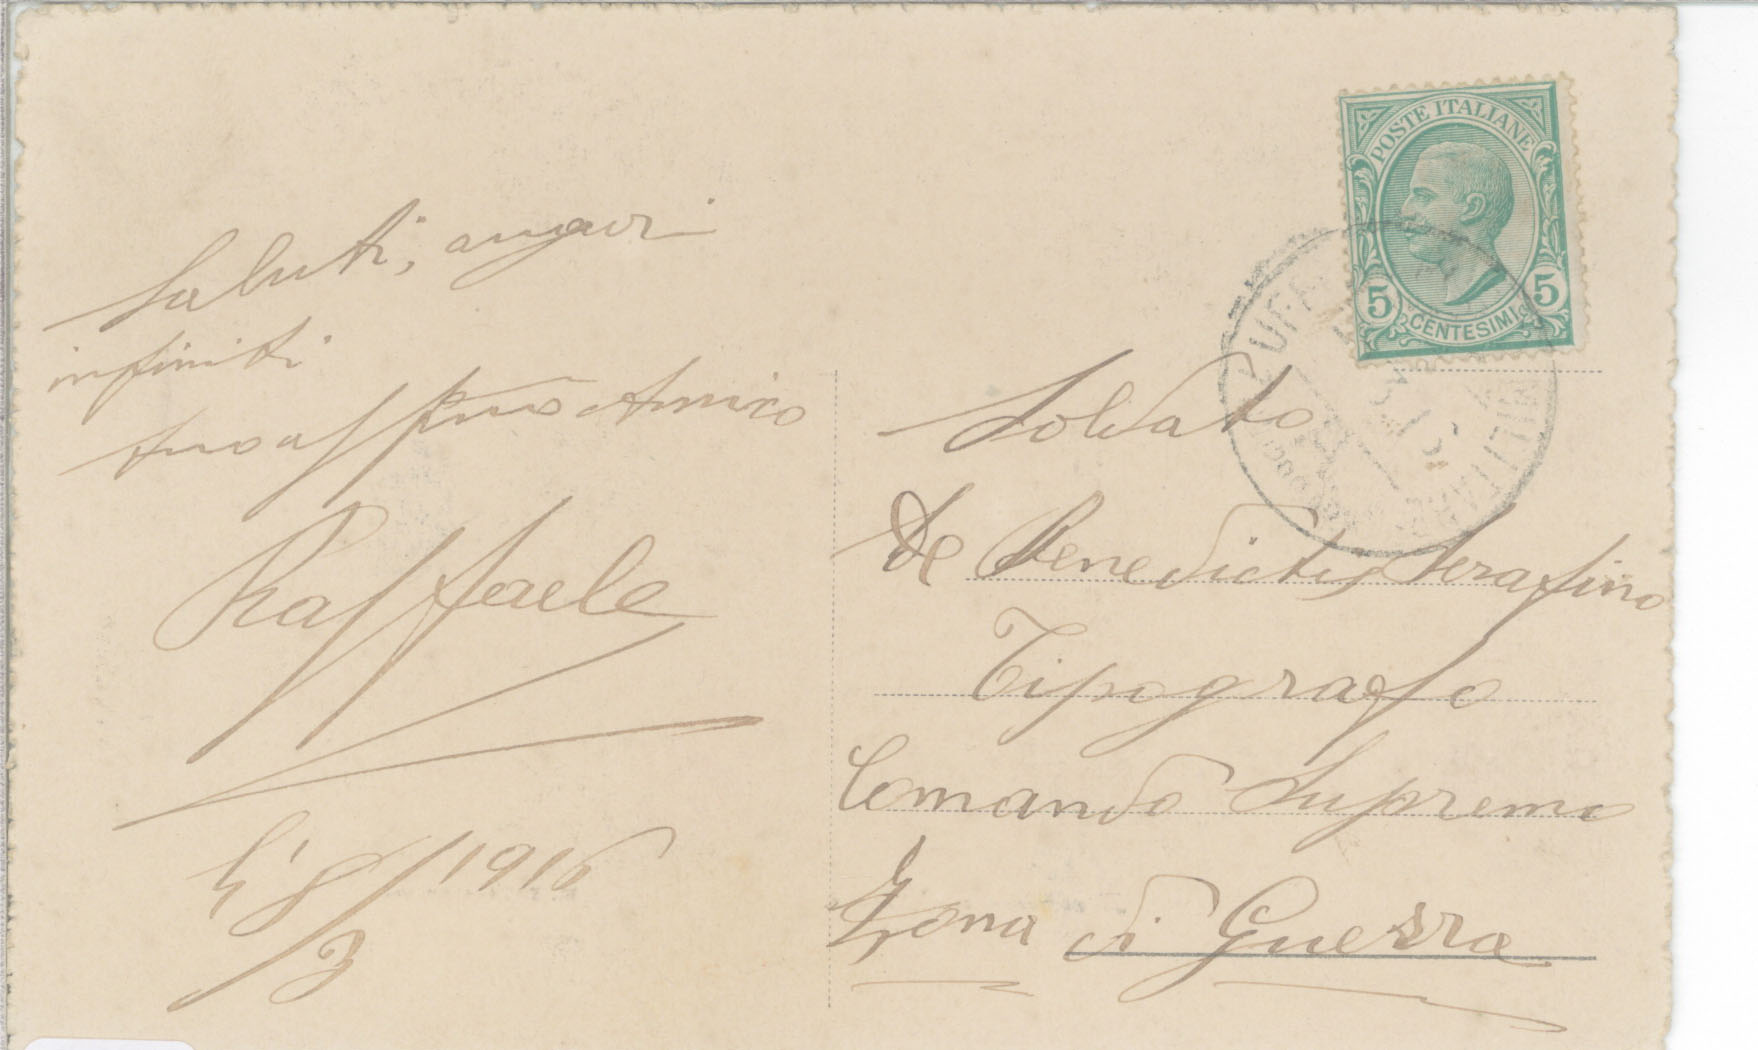 Saluti, auguri
infiniti
tuo aff/mo Amico
Raffaele
8/3 1916
POSTE ITALIANE
5 CENTESIMI 5
MILITARE
Soldato
De Benedictis Serafino
Tipografo
Comando Supremo
Zona di Guerra